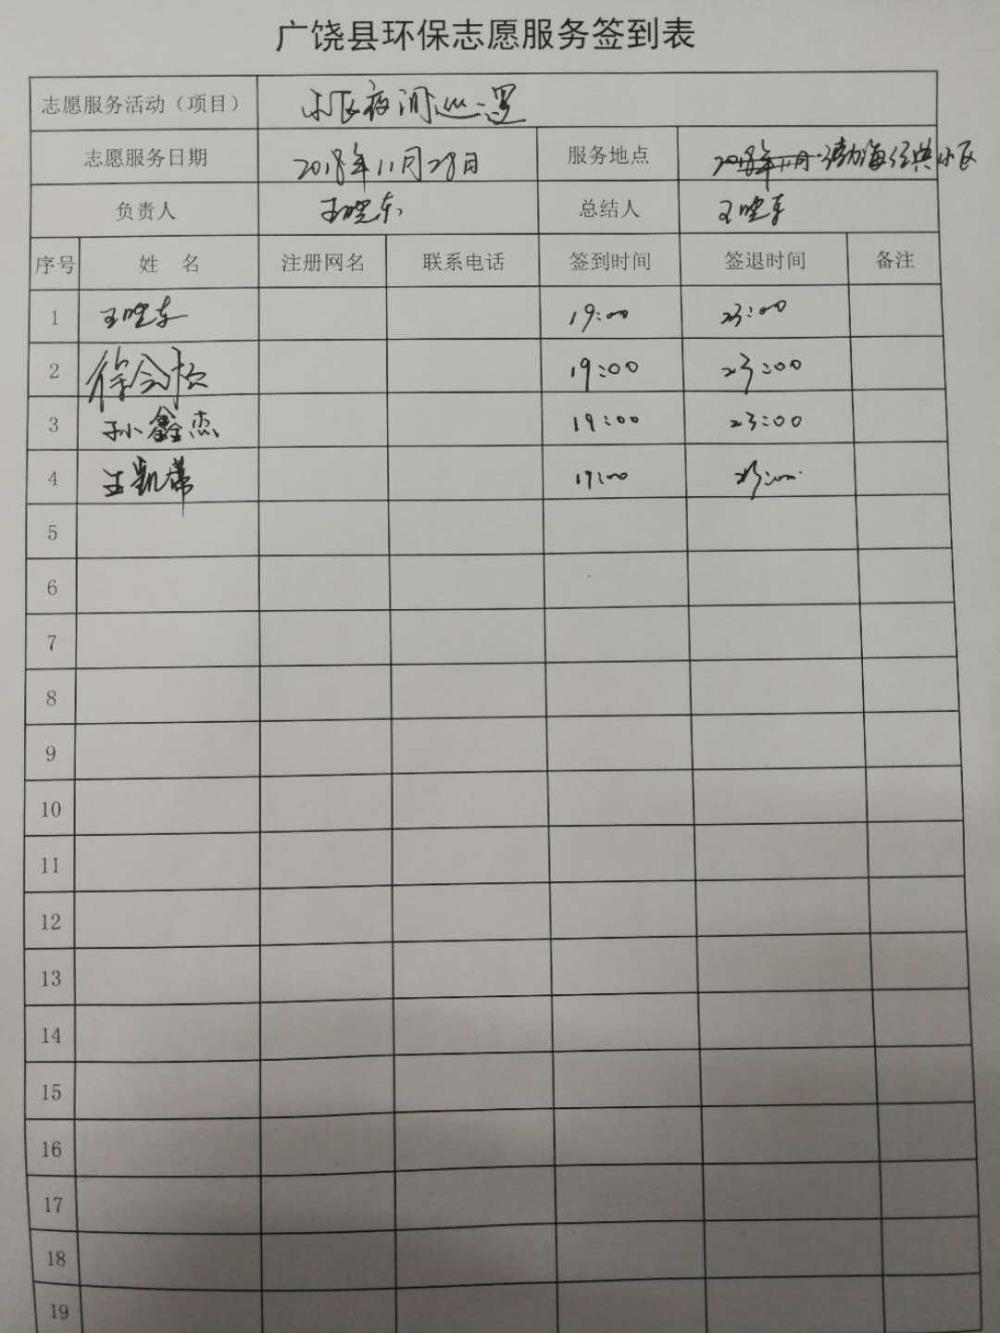 广饶县环保志愿服务签到表
志愿服务活动（项目） 小区夜间巡逻
志愿服务日期 2018年11月28日 服务地点 渤海经典小区
负责人 王晓东 总结人 王晓东
序号 姓 名 注册网名 联系电话 签到时间 签退时间 备注
1 王晓东 19:00 23:00
2 徐会 19:00 23:00
3 孙鑫杰 19:00 23:00
4 王凯 19:00 23:00
5
6
7
8
9
10
11
12
13
14
15
16
17
18
19